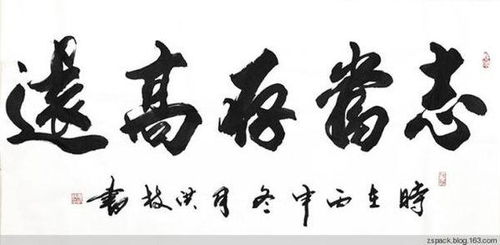 志當存高遠
時在丙申冬月洪枝書
zspack.blog.163.com